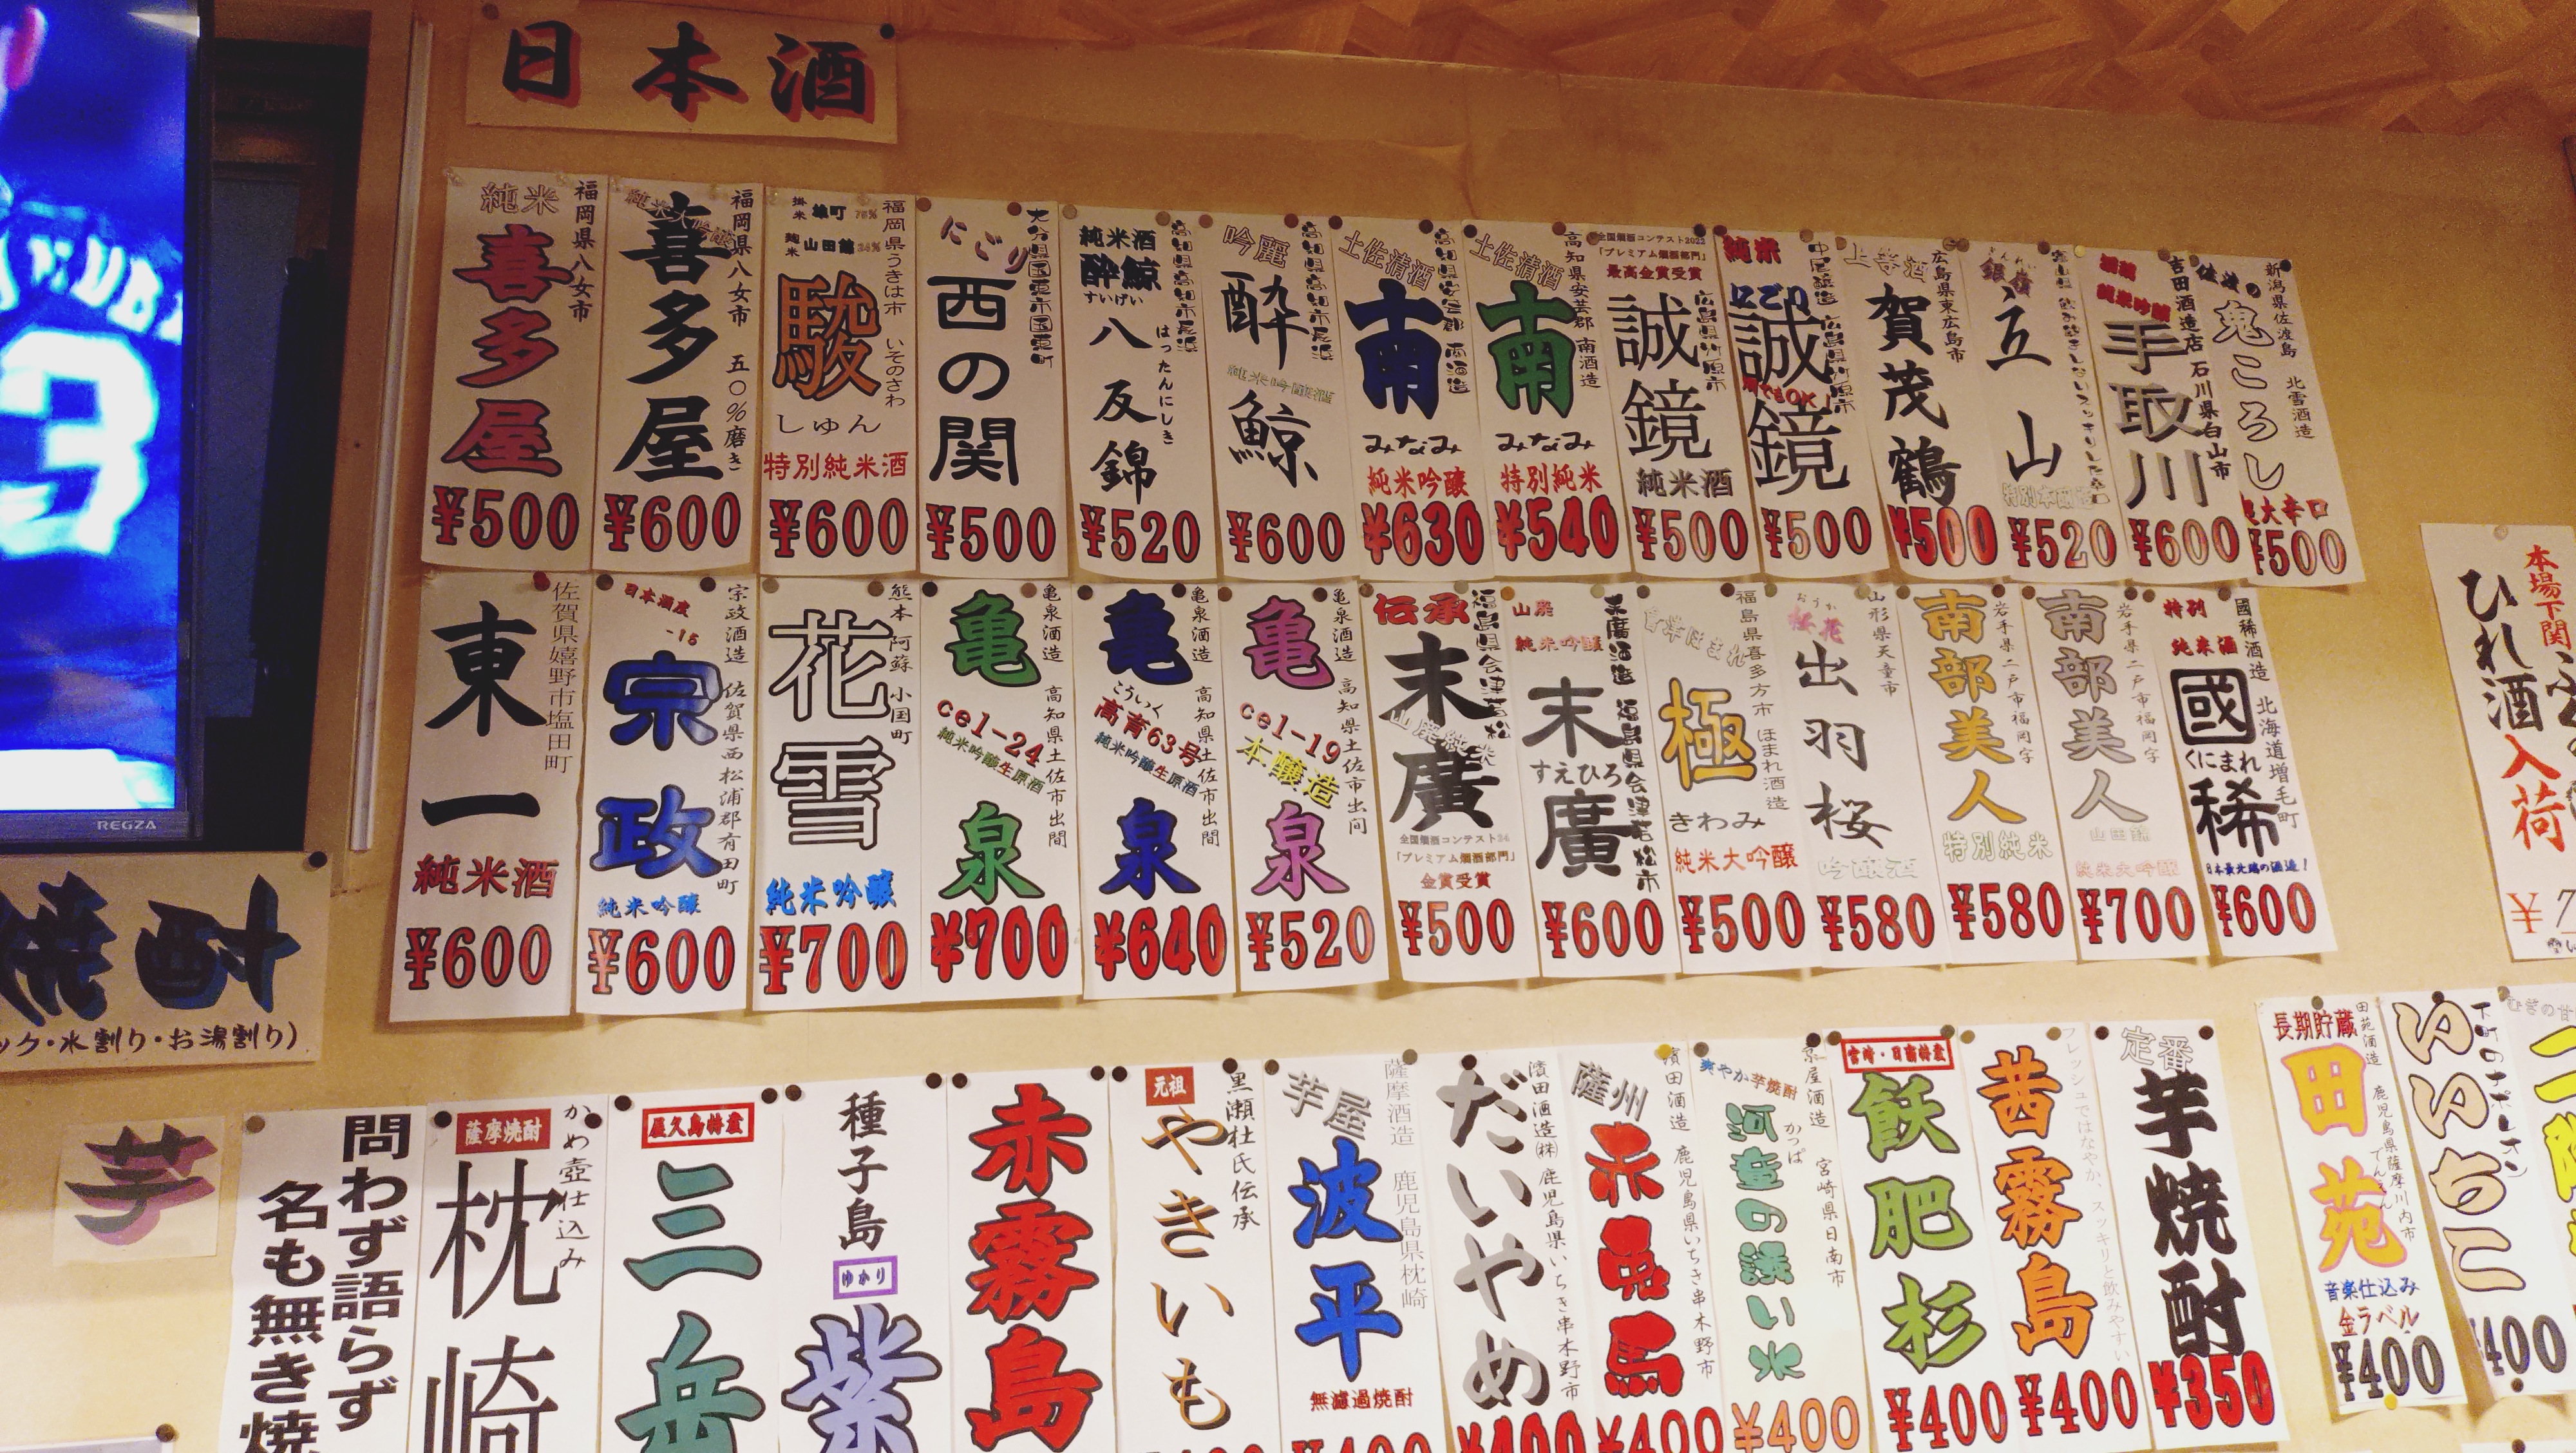 日本酒
純米
喜多屋
福岡県八女市
¥500
喜多屋
福岡県八女市 五〇%磨き
¥600
掛米 雄町
麹米 山田錦
駿
しゅん
福岡県うきは市 いそのさわ
特別純米酒
¥600
にごり
西の関
大分県国東市国東町
¥500
純米酒
酔鯨
すいげい
八反錦
はったんにしき
高知県高知市長浜
¥520
吟麗
酔鯨
純米吟醸酒
高知県高知市長浜
¥600
土佐清酒
南
みなみ
純米吟醸
¥630
土佐清酒
南
みなみ
高知県安芸郡 南酒造
特別純米
¥540
全国燗酒コンテスト2022
「プレミアム燗酒部門」
最高金賞受賞
誠鏡
純米酒
¥500
純米
にごり
誠鏡
¥500
上等酒
賀茂鶴
広島県東広島市
¥500
銀嶺
立山
¥520
純米吟醸
手取川
吉田酒造店 石川県白山市
¥600
佐渡の
鬼ころし
新潟県佐渡島 北雪酒造
超大辛口
¥500
東一
佐賀県嬉野市塩田町
純米酒
¥600
日本酒度
-15
宗政
宗政酒造 佐賀県西松浦郡有田町
純米吟醸
¥600
花雪
熊本 阿蘇 小国町
純米吟醸
¥700
亀泉
亀泉酒造 高知県土佐市出間
cel-24
純米吟醸生原酒
¥700
亀泉
亀泉酒造 高知県土佐市出間
こういく
高育63号
純米吟醸生原酒
¥640
亀泉
亀泉酒造 高知県土佐市出間
cel-19
本醸造
¥520
伝承
末廣
山廃純米
全国燗酒コンテスト24
「プレミアム燗酒部門」
金賞受賞
¥500
山廃
純米吟醸
末廣
すえひろ
末廣酒造 福島県会津若松市
¥600
会津ほまれ
極
きわみ
福島県喜多方市 ほまれ酒造
純米大吟醸
¥500
おうか
桜花
出羽桜
山形県天童市
吟醸酒
¥580
南部美人
岩手県二戸市福岡字
特別純米
¥580
南部美人
岩手県二戸市福岡字
山田錦
純米大吟醸
¥700
特別
純米酒
國稀
くにまれ
國稀酒造 北海道増毛町
日本最北端の酒造!
¥600
本場下関
ひれ酒
入荷
¥7
焼酎
ック・水割り・お湯割り)
芋
問わず語らず
名も無き焼
薩摩焼酎
枕崎
かめ壺仕込み
屋久島特産
三岳
種子島
ゆかり
紫
赤霧島
元祖
やきいも
黒瀬杜氏伝承
芋屋
波平
薩摩酒造 鹿児島県枕崎
無濾過焼酎
だいやめ
濱田酒造㈱ 鹿児島県いちき串木野市
¥400
薩州
赤兎馬
濱田酒造 鹿児島県いちき串木野市
¥400
爽やか芋焼酎
河童の誘い水
かっぱ
京屋酒造 宮崎県日南市
¥400
宮崎・日南特産
飫肥杉
¥400
茜霧島
フレッシュではなやか、スッキリと飲みやすい
¥400
定番
芋焼酎
¥350
長期貯蔵
田苑
でんえん
田苑酒造 鹿児島県薩摩川内市
音楽仕込み
金ラベル
¥400
いいちこ
下町のナポレオン
¥400
むぎの甘
REGZA
3